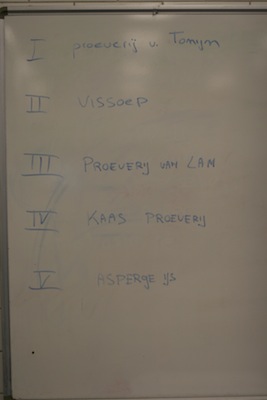 I proeverij v. Tonijn
II VISSOEP
III PROEVERIJ VAN LAM
IV KAAS PROEVERIJ
V ASPERGE IJS